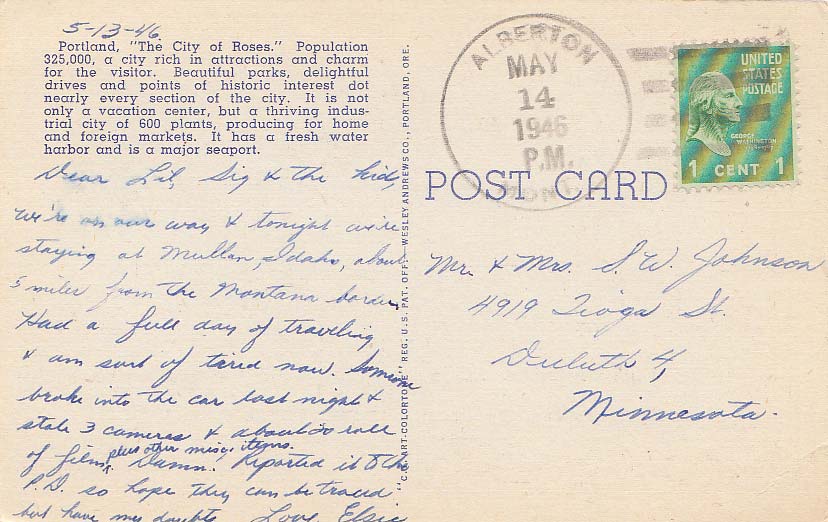 5-13-46.
Portland, "The City of Roses." Population
325,000, a city rich in attractions and charm
for the visitor. Beautiful parks, delightful
drives and points of historic interest dot
nearly every section of the city. It is not
only a vacation center, but a thriving indus-
trial city of 600 plants, producing for home
and foreign markets. It has a fresh water
harbor and is a major seaport.
Dear Lil, Sig & the kid,
We're on our way & tonight we're
staying at Mullan, Idaho, about
5 miles from the Montana border.
Had a full day of traveling
& am sort of tired now. Someone
broke into the car last night &
stole 3 cameras & about 20 rolls
plus other misc. items.
of film. Damn. Reported it to the
P.D. so hope they can be traced
but have my doubts. Love, Elsie
"C.T. ART-COLORTONE" REG. U.S. PAT. OFF. — WESLEY ANDREWS CO., PORTLAND, ORE.
ALBERTON
MAY
14
1946
P.M.
MONT.
UNITED
STATES
POSTAGE
GEORGE
WASHINGTON
1 CENT 1
POST CARD
Mr. & Mrs. S. W. Johnson
4919 Tioga St.
Duluth 4,
Minnesota.